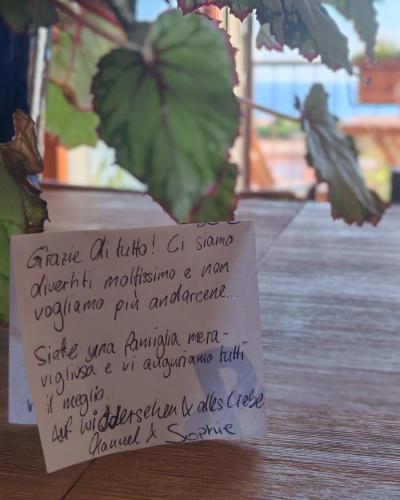 Grazie di tutto! Ci siamo
divertiti moltissimo e non
vogliamo più andarcene...
Siete una famiglia mera-
vigliosa e vi auguriamo tutti
il meglio.
Auf wiedersehen & alles Liebe
Manuel & Sophie